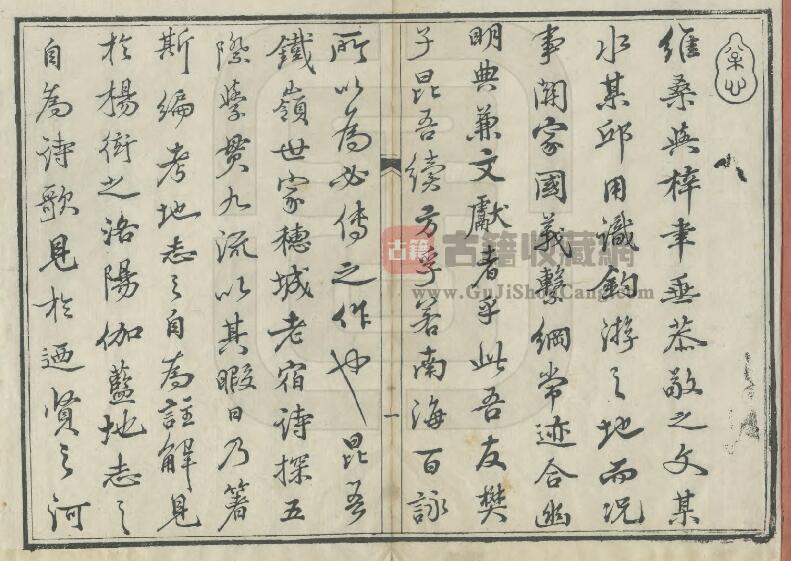 維桑與梓聿垂恭敬之文某
水某邱用識釣游之地而況
事關家國義繫綱常迹合幽
明典兼文獻者乎此吾友樊
子昆吾續方孚若南海百詠
一
所以為必傳之作也昆吾
鐵嶺世家穗城老宿詩探五
際學貫九流以其暇日乃著
斯編考地志之自為註解見
於楊衒之洛陽伽藍地志之
自為詩歌見於迺賢之河
古籍
古籍收藏網
www.GuJiShouCang.com